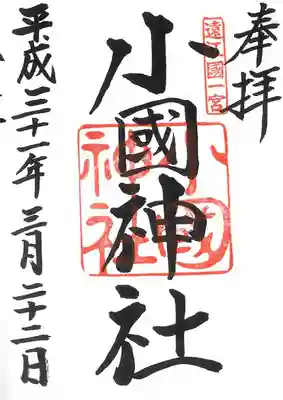 奉拝
遠江國一宮
小國神社
小國神社
平成三十一年三月二十二日